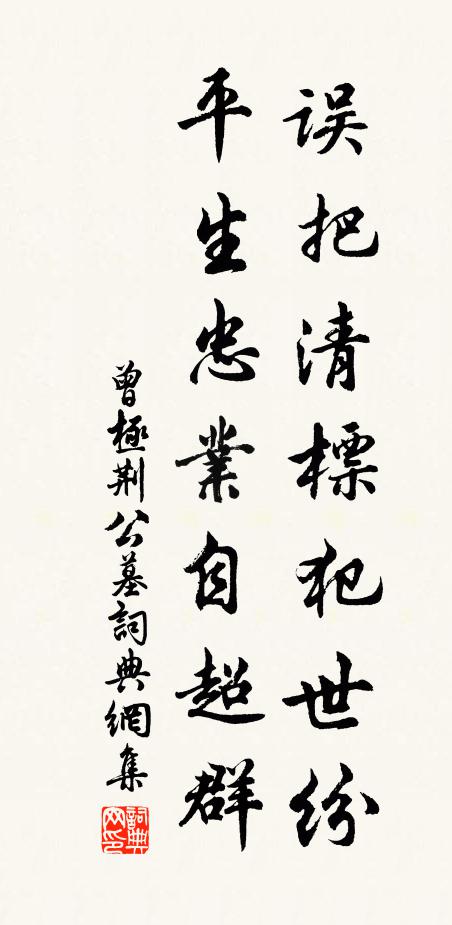 误把清標犯世紛
平生忠業自超群
曾極荆公墓詞典網集
詞典网印